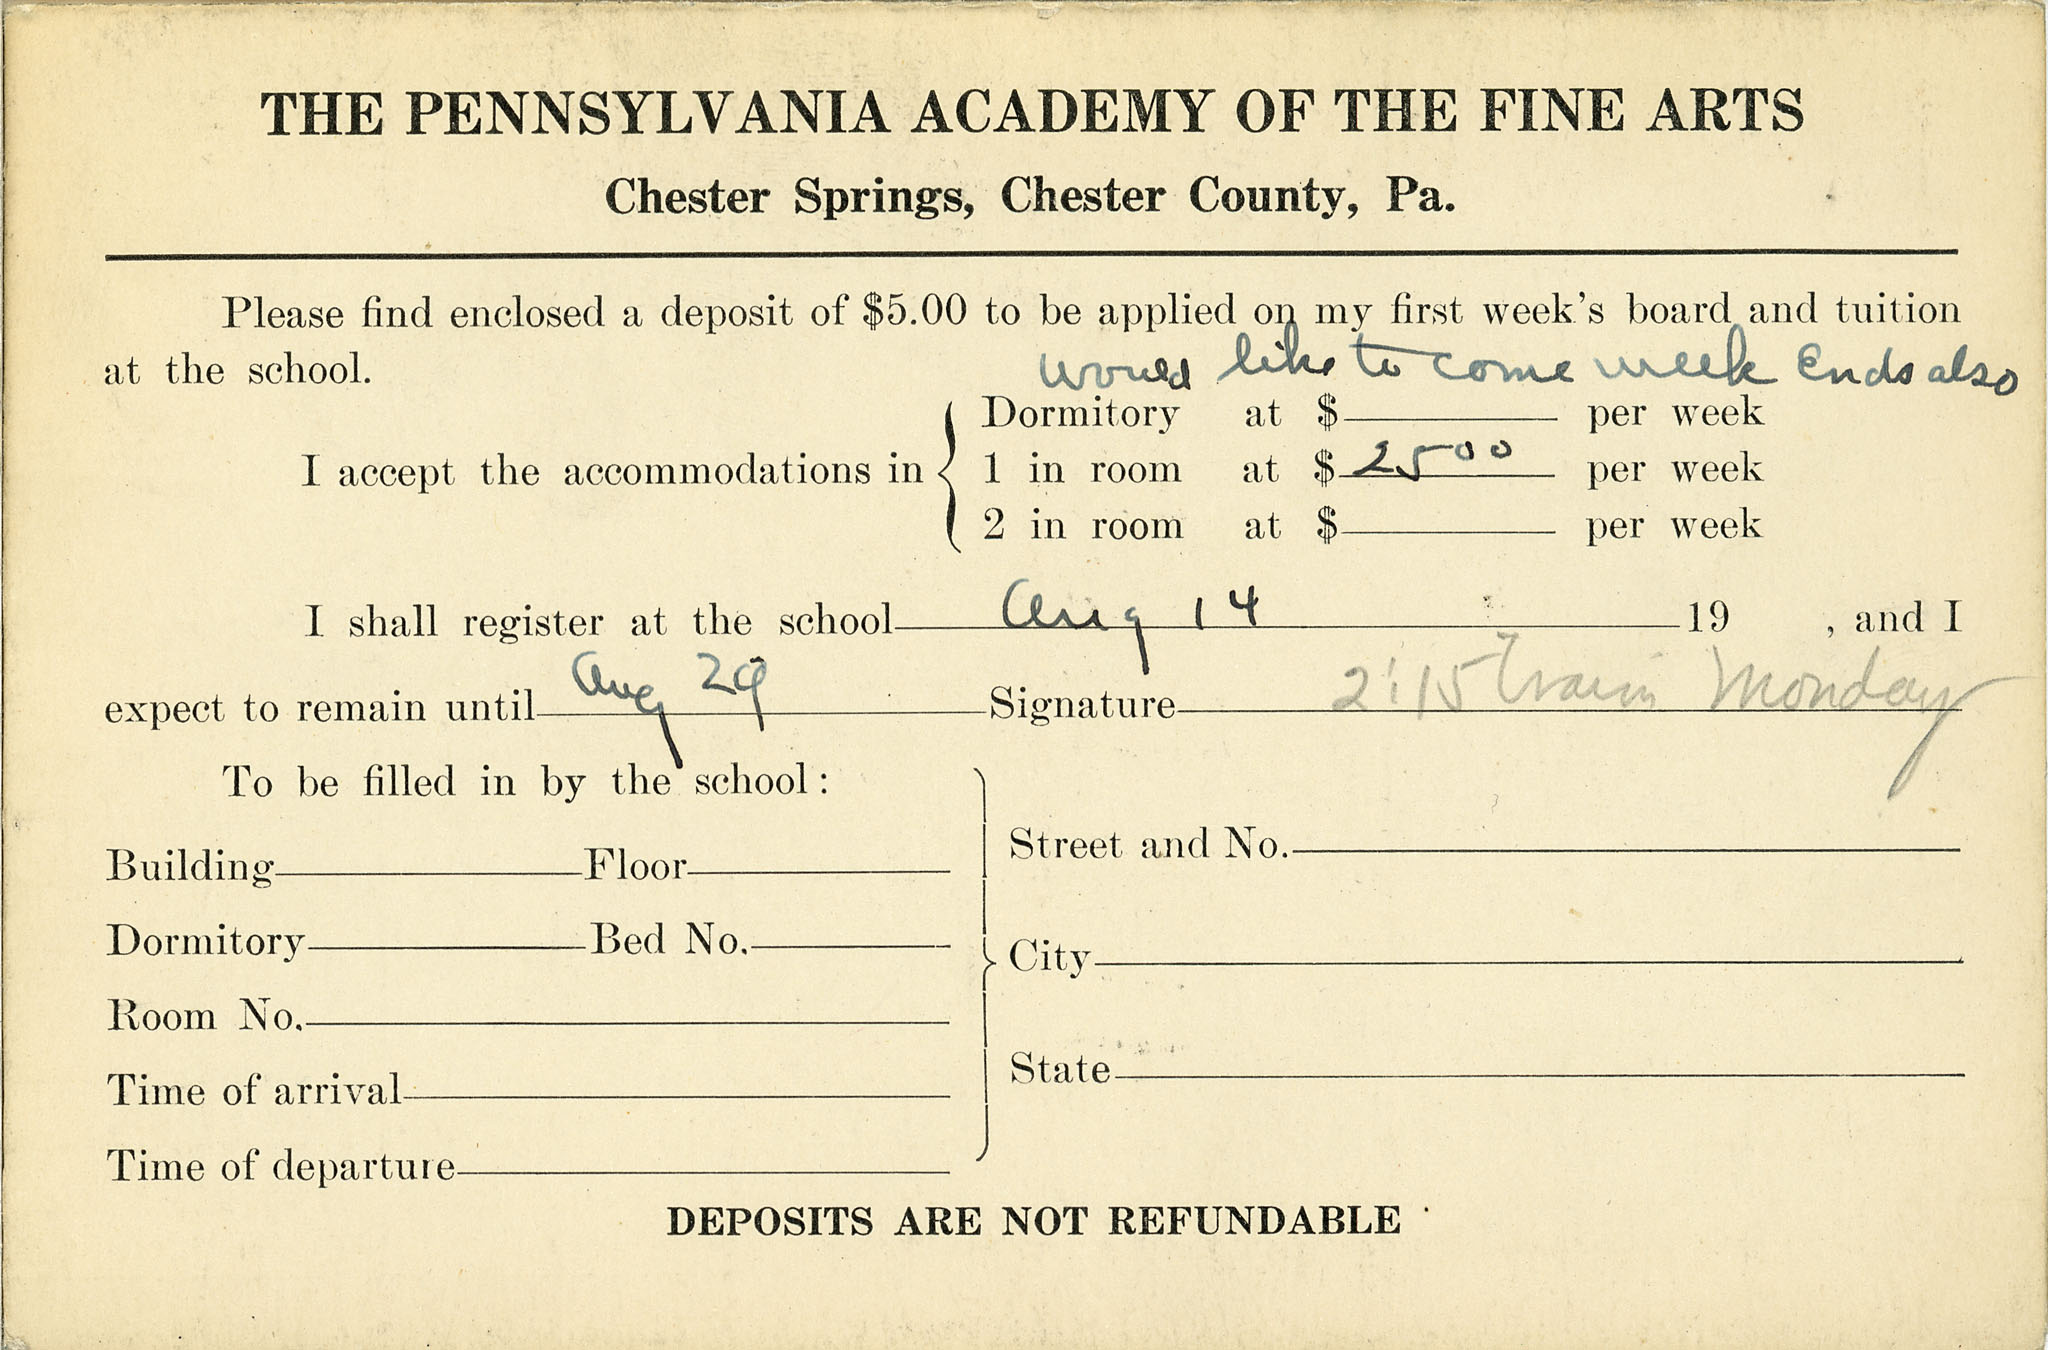 THE PENNSYLVANIA ACADEMY OF THE FINE ARTS
Chester Springs, Chester County, Pa.
Please find enclosed a deposit of $5.00 to be applied on my first week's board and tuition
at the school.
would like to come week Ends also
Dormitory at $ per week
I accept the accommodations in 1 in room at $ 2500 per week
2 in room at $ per week
I shall register at the school Aug 14 19 , and I
expect to remain until Aug 29 Signature 2:15 train Monday
To be filled in by the school:
Building Floor
Street and No.
Dormitory Bed No.
City
Room No.
State
Time of arrival
Time of departure
DEPOSITS ARE NOT REFUNDABLE